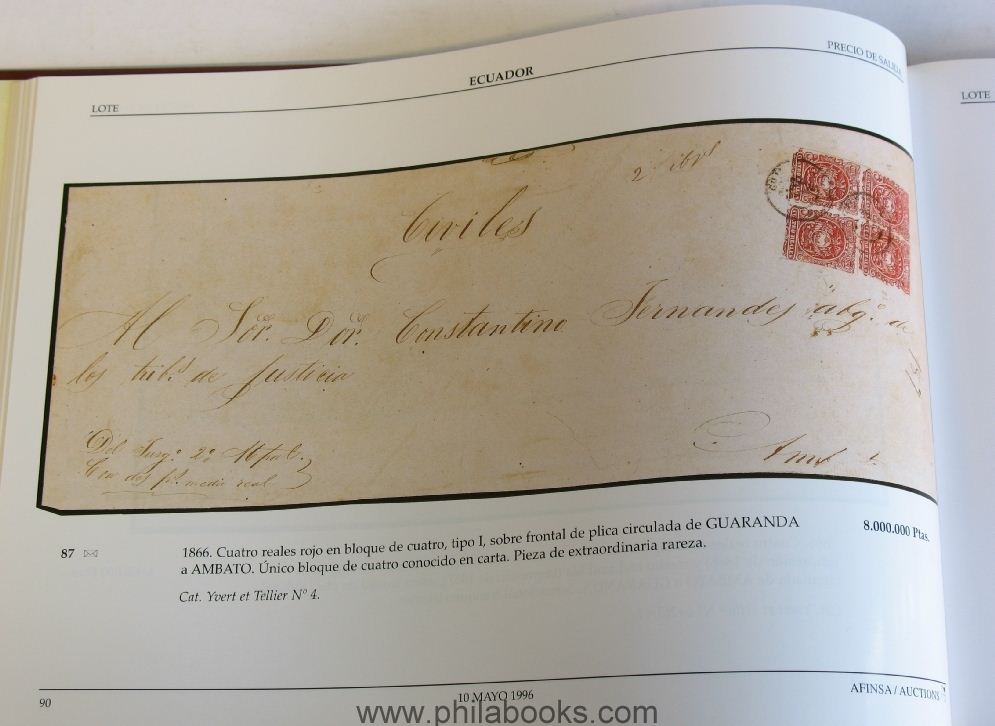 ECUADOR
PRECIO DE SALIDA
LOTE
LOTE
2 libs
Civiles
Al Sor. Dor. Constantino Fernandes abgo. de
los tribs. de Justicia
Del Juzgo. 2o. Mpal.
Con dos ps. medio real
87
1866. Cuatro reales rojo en bloque de cuatro, tipo I, sobre frontal de plica circulada de GUARANDA
8.000.000 Ptas.
a AMBATO. Único bloque de cuatro conocido en carta. Pieza de extraordinaria rareza.
Cat. Yvert et Tellier Nº 4.
90
10 MAYO 1996
AFINSA / AUCTIONS
www.philabooks.com